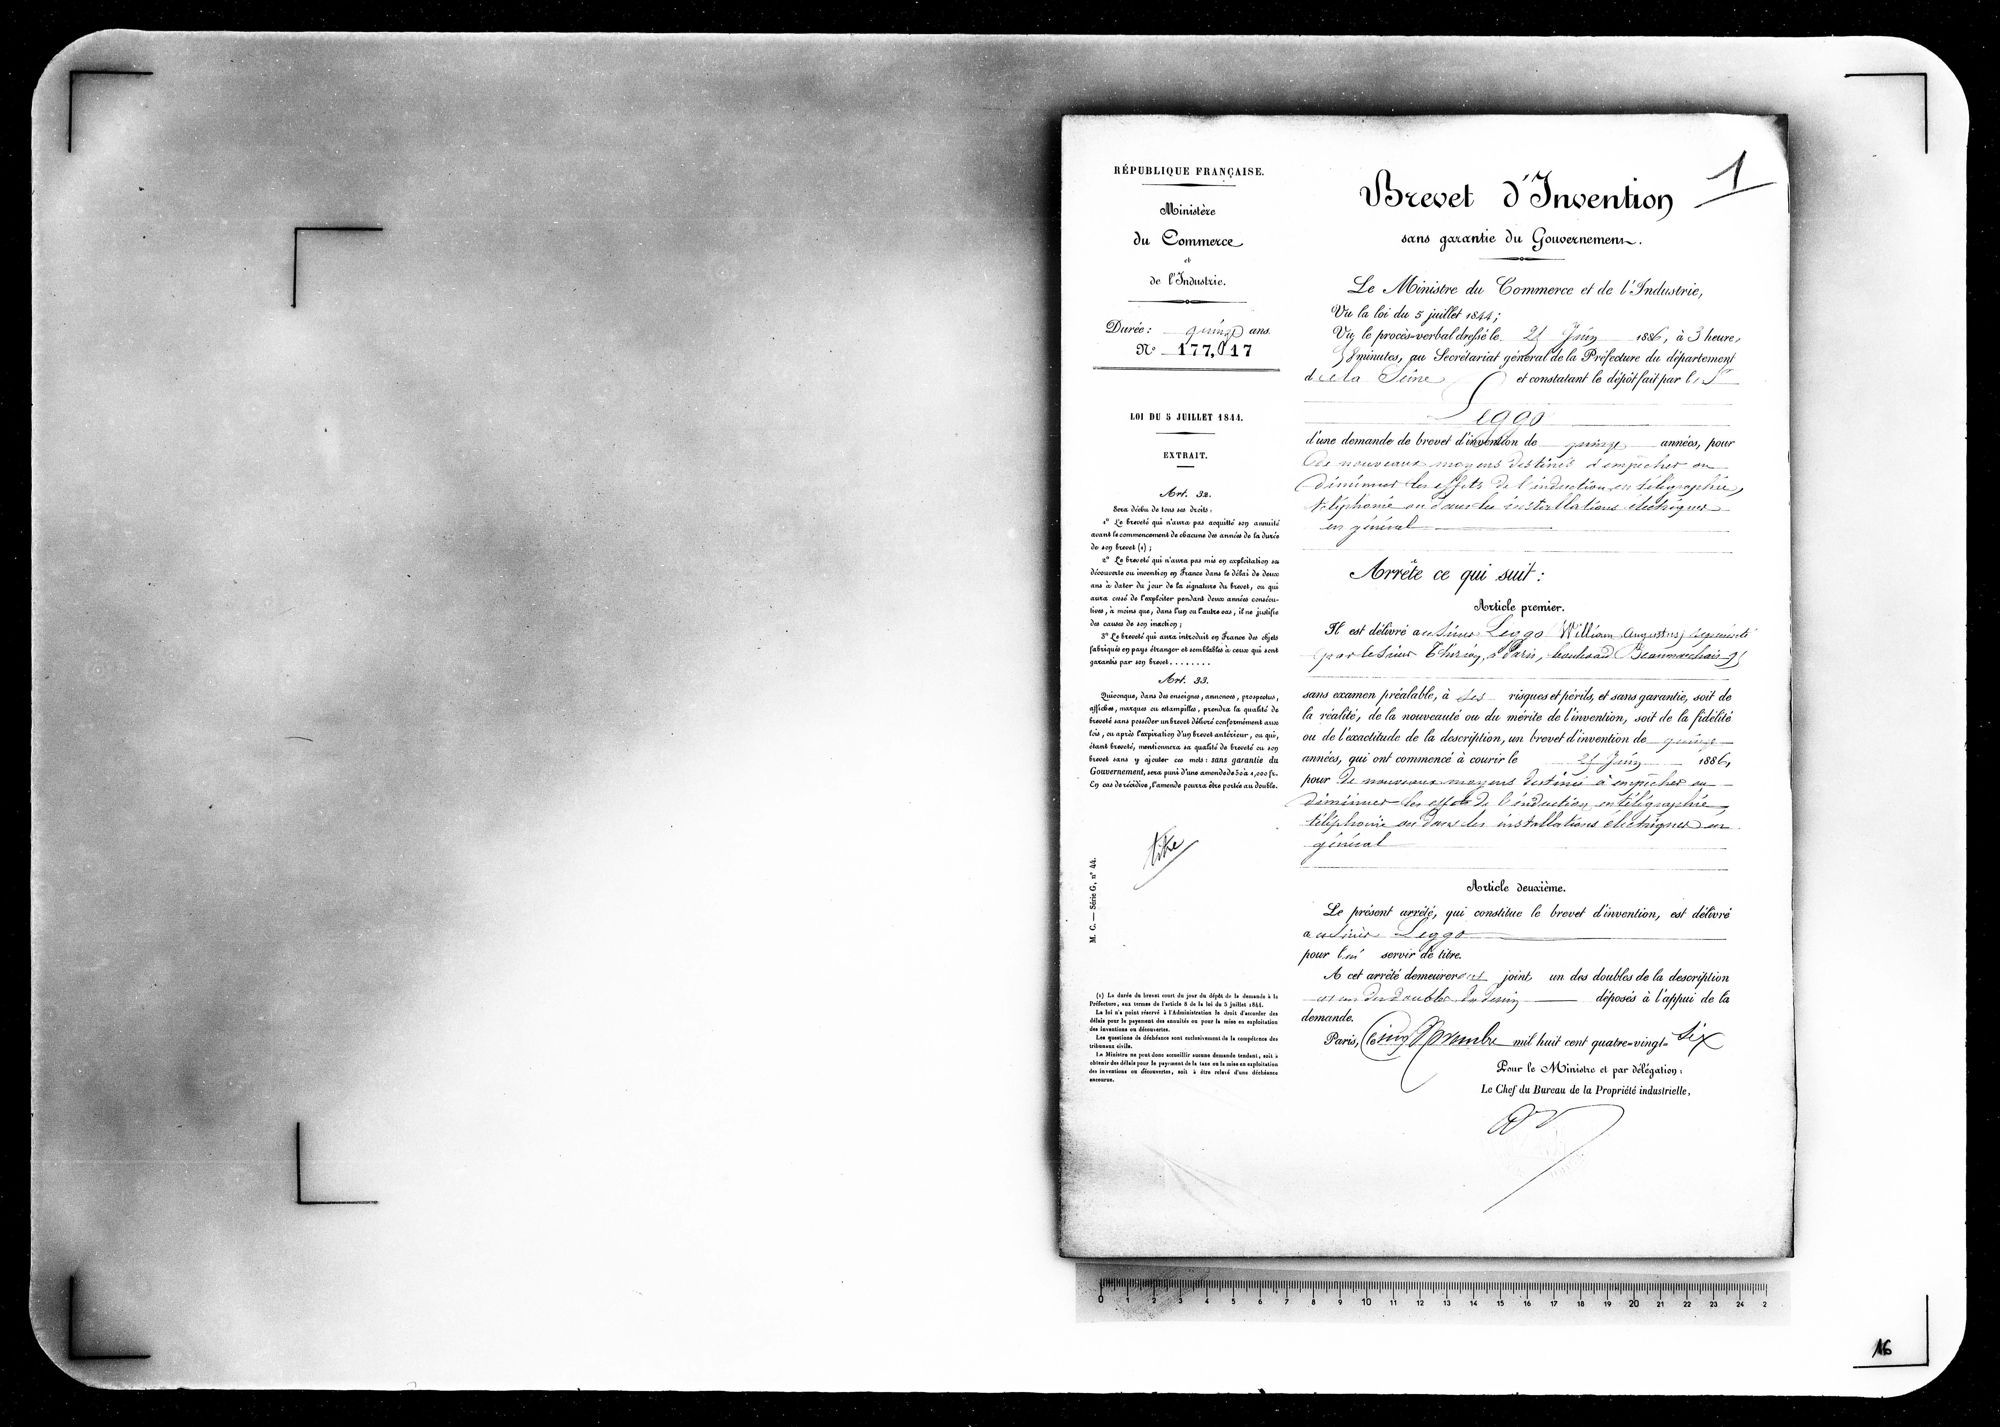 RÉPUBLIQUE FRANÇAISE.
Ministère
du Commerce
et
de l'Industrie.
Durée : quinze ans.
N° 177,017
LOI DU 5 JUILLET 1844.
EXTRAIT.
Art. 32.
Sera déchu de tous ses droits :
1° Le breveté qui n'aura pas acquitté son annuité
avant le commencement de chacune des années de la durée
de son brevet (1) ;
2° Le breveté qui n'aura pas mis en exploitation sa
découverte ou invention en France dans le délai de deux
ans à dater du jour de la signature du brevet, ou qui
aura cessé de l'exploiter pendant deux années consécu-
tives, à moins que, dans l'un ou l'autre cas, il ne justifie
des causes de son inaction ;
3° Le breveté qui aura introduit en France des objets
fabriqués en pays étranger et semblables à ceux qui sont
garantis par son brevet . . . . . . . .
Art. 33.
Quiconque, dans des enseignes, annonces, prospectus,
affiches, marques ou estampilles, prendra la qualité de
breveté sans posséder un brevet délivré conformément aux
lois, ou après l'expiration d'un brevet antérieur, ou qui,
étant breveté, mentionnera sa qualité de breveté ou son
brevet sans y ajouter ces mots : sans garantie du
Gouvernement, sera puni d'une amende de 50 à 1,000 fr.
En cas de récidive, l'amende pourra être portée au double.
titre
M. C. — Série G, n° 44.
(1) La durée du brevet court du jour du dépôt de la demande à la
Préfecture, aux termes de l'article 8 de la loi du 5 juillet 1844.
La loi n'a point réservé à l'Administration le droit d'accorder des
délais pour le payement des annuités ou pour la mise en exploitation
des inventions ou découvertes.
Les questions de déchéance sont exclusivement de la compétence des
tribunaux civils.
Le Ministre ne peut donc accueillir aucune demande tendant, soit à
obtenir des délais pour le payement de la taxe ou la mise en exploitation
des inventions ou découvertes, soit à être relevé d'une déchéance
encourue.
1
Brevet d'Invention
sans garantie du Gouvernement.
Le Ministre du Commerce et de l'Industrie,
Vu la loi du 5 juillet 1844 ;
Vu le procès-verbal dressé le 21 Juin 1886, à 3 heures
58 minutes, au Secrétariat général de la Préfecture du département
de la Seine et constatant le dépôt fait par le Sr
Leggo
d'une demande de brevet d'invention de quinze années, pour
de nouveaux moyens destinés à empêcher ou
diminuer les effets de l'induction en télégraphie,
téléphonie ou dans les installations électriques
en général
Arrête ce qui suit :
Article premier.
Il est délivré au Sieur Leggo (William Augustus) représenté
par le Sieur Thirion, à Paris, boulevard Beaumarchais 95
sans examen préalable, à ses risques et périls, et sans garantie, soit de
la réalité, de la nouveauté ou du mérite de l'invention, soit de la fidélité
ou de l'exactitude de la description, un brevet d'invention de quinze
années, qui ont commencé à courir le 21 Juin 1886,
pour de nouveaux moyens destinés à empêcher ou
diminuer les effets de l'induction en télégraphie
téléphonie ou dans les installations électriques en
général
Article deuxième.
Le présent arrêté, qui constitue le brevet d'invention, est délivré
au Sieur Leggo
pour lui servir de titre.
A cet arrêté demeureront joints un des doubles de la description
et un des doubles du dessin déposés à l'appui de la
demande.
Paris, le cinq Novembre mil huit cent quatre-vingt-six
Pour le Ministre et par délégation :
Le Chef du Bureau de la Propriété industrielle,
0 1 2 3 4 5 6 7 8 9 10 11 12 13 14 15 16 17 18 19 20 21 22 23 24 2
16